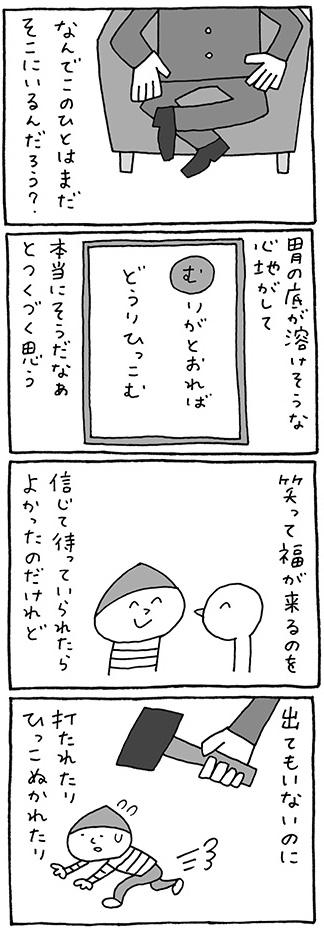 なんでこのひとはまだ
そこにいるんだろう?
胃の底が溶けそうな
心地がして
む りがとおれば
どうりひっこむ
本当にそうだなぁ
とつくづく思う
笑って福が来るのを
信じて待っていられたら
よかったのだけれど
出てもいないのに
打たれたり
ひっこぬかれたり